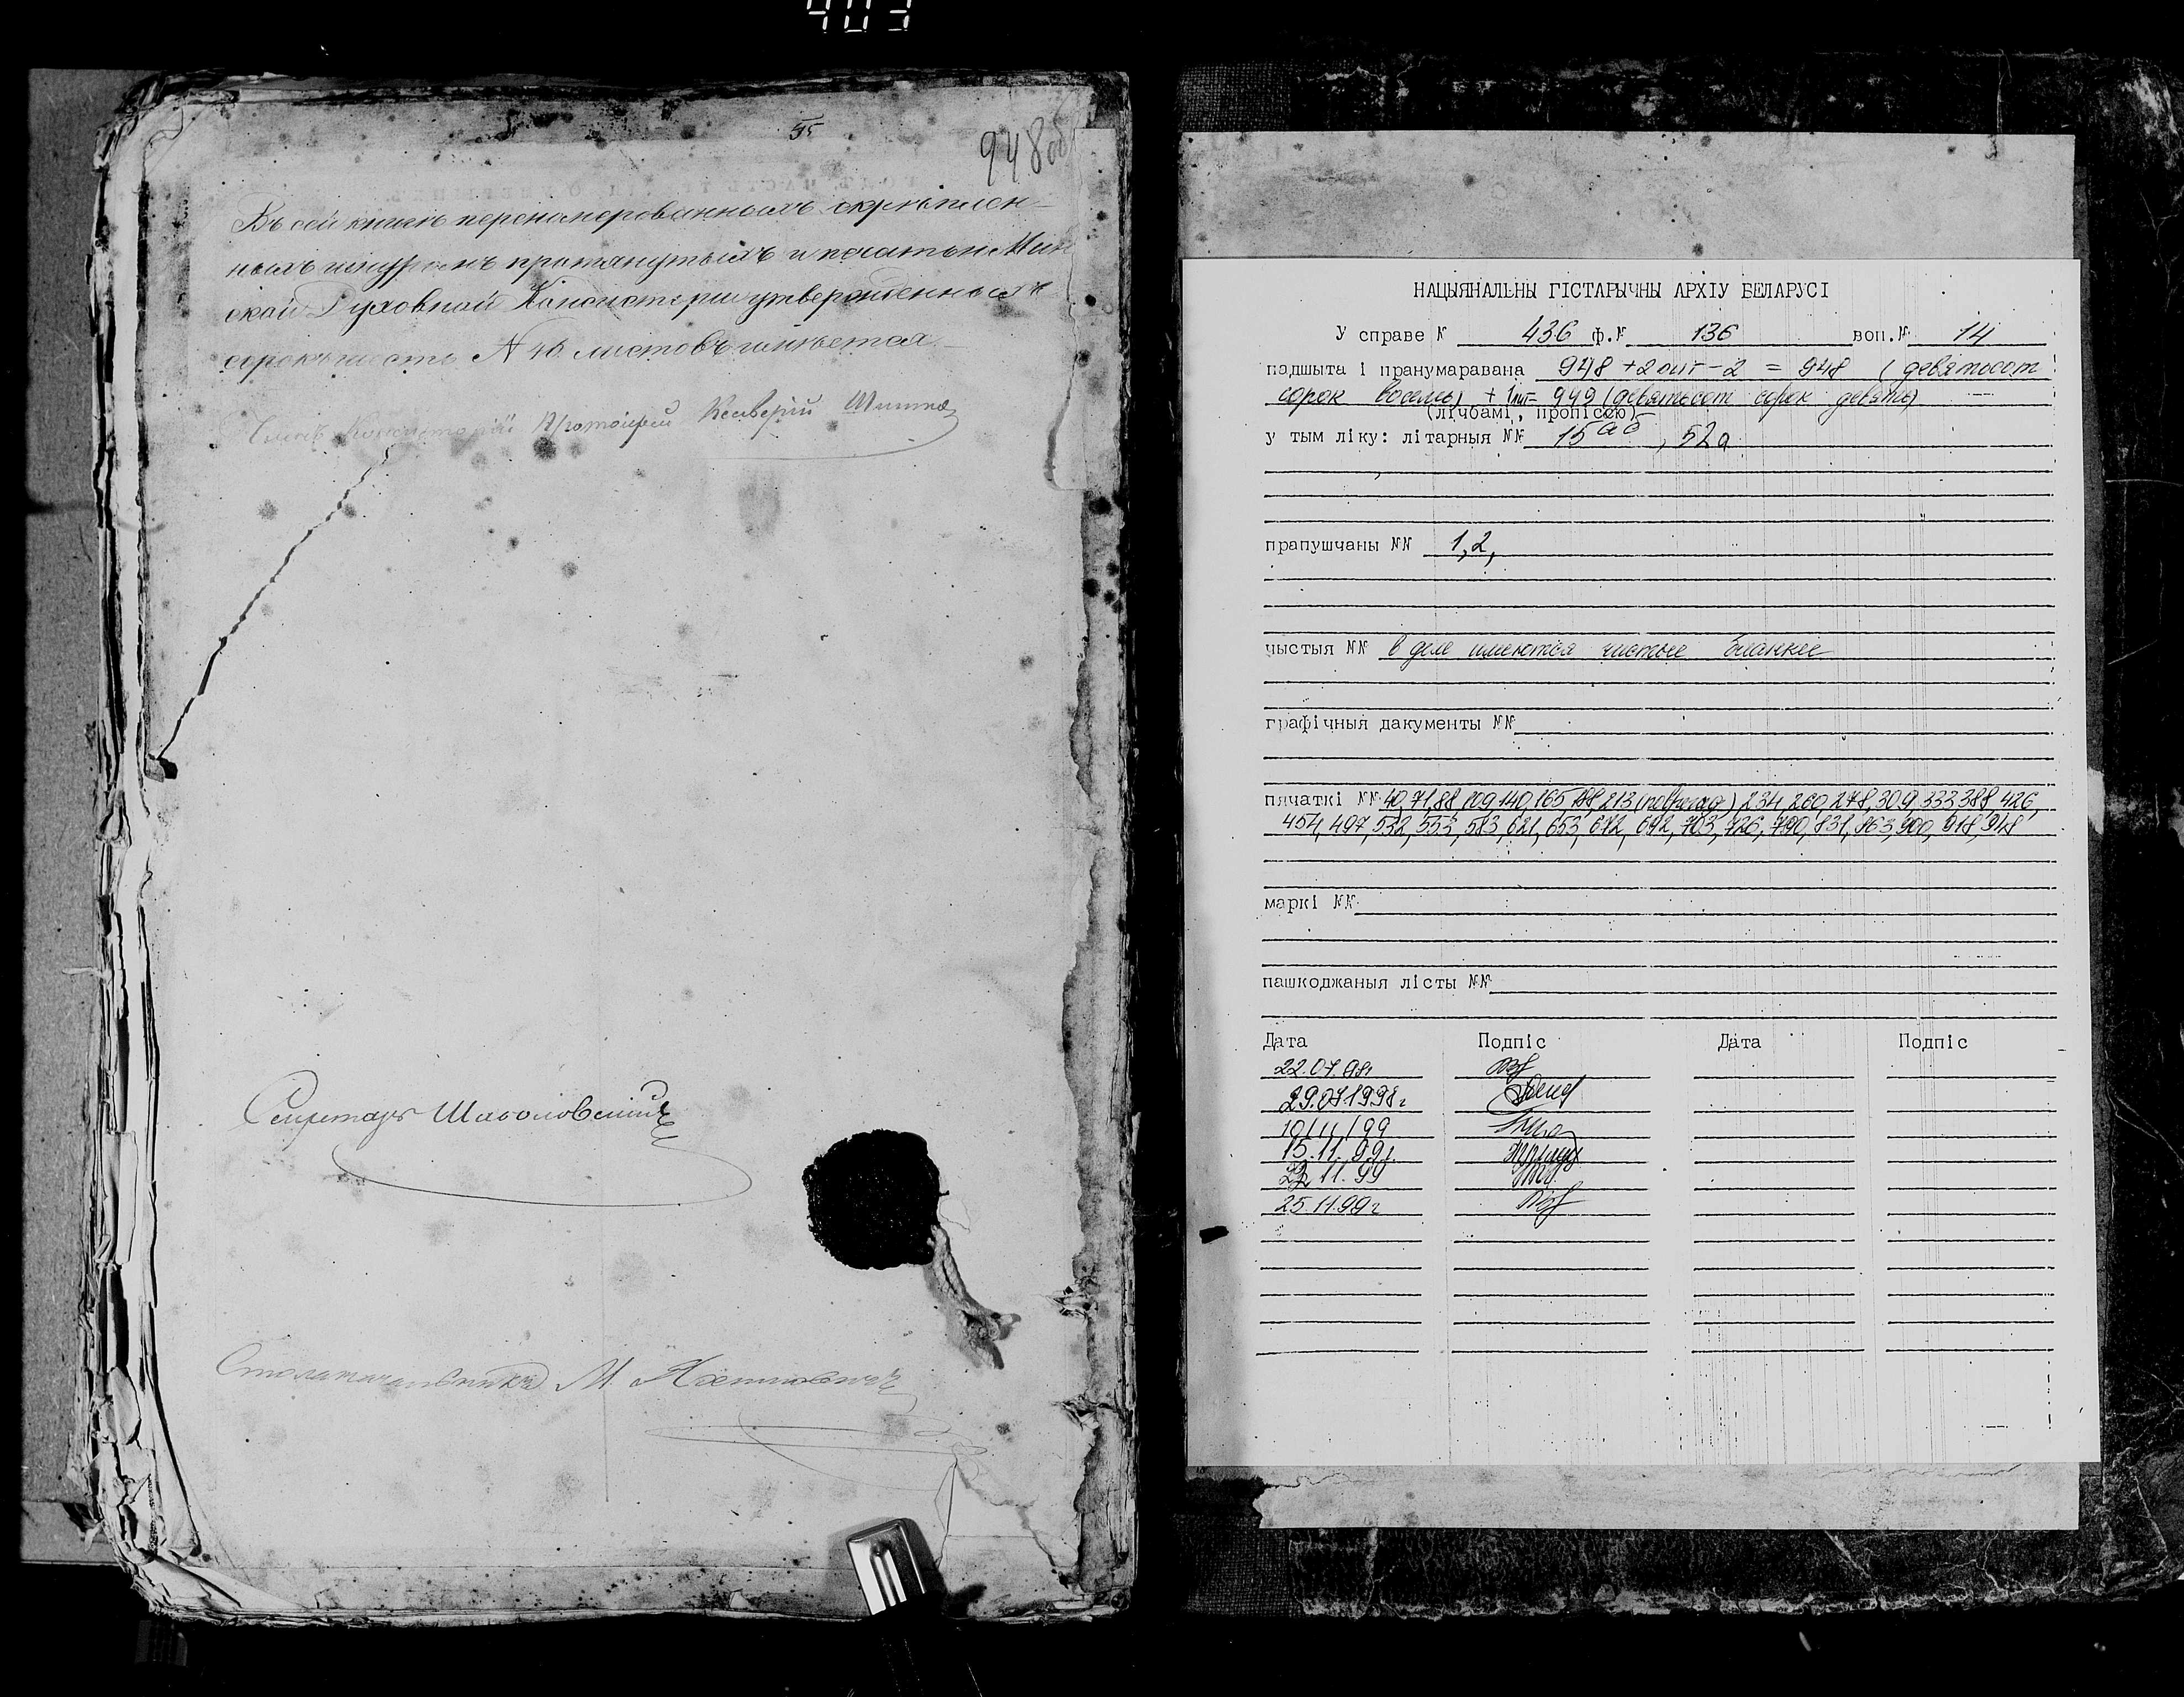 403
55
948об
Въ сей книгѣ переномерованныхъ скрѣплен-
ныхъ шнуромъ протянутыхъ и печатью Мин
ской Духовной Консисторіи утвержденныхъ
сорокъ шесть № 46 листовъ имѣется
Членъ Консисторіи Протоіерей
Секретарь
Столоначальникъ М.
НАЦЫЯНАЛЬНЫ ГІСТАРЫЧНЫ АРХІУ БЕЛАРУСІ
У справе № 436 ф.№ 136 воп.№ 14
падшыта і пранумаравана 948 + 2 лит - 2 = 948 (девятьсот
сорок восемь) + 1 лит = 949 (девятьсот сорок девять)
(лічбамі, пропісcю)
у тым ліку: літарныя №№ 15аб, 52а
прапушчаны №№ 1,2,
чыстыя №№ в деле имеются чистые бланки
графічныя дакументы №№
пячаткі №№ 40, 71, 88, 109, 140, 165, 198, 213 (поврежд) 234, 260, 278, 309, 333, 388, 426,
454, 497, 532, 553, 583, 621, 653, 672, 692, 703, 726, 790, 831, 863, 900, 918, 948
маркі №№
пашкоджаныя лісты №№
Дата Подпіс Дата Подпіс
22.07.98г
29.07.1998г
10/11/99
15.11.99г.
22.11.99
25.11.99г